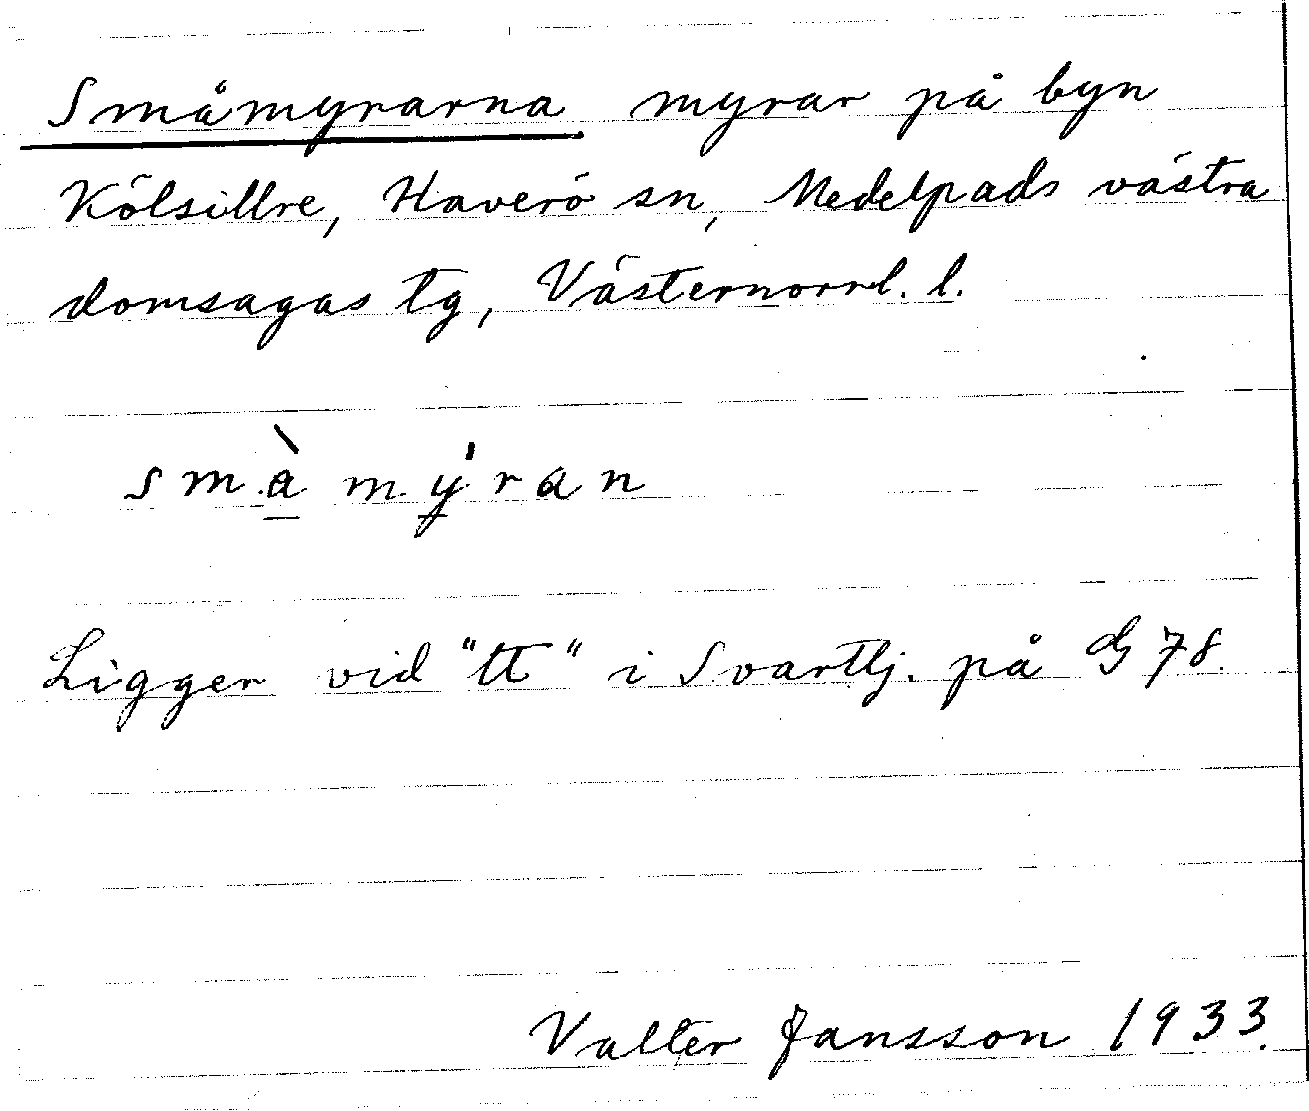 Småmyrarna myrar på byn
Kölsillre, Haverö sn, Medelpads västra
domsagas tg, Västernorrl. l.
småmýran
Ligger vid "tt" i Svarttj. på G 78.
Valter Jansson 1933.